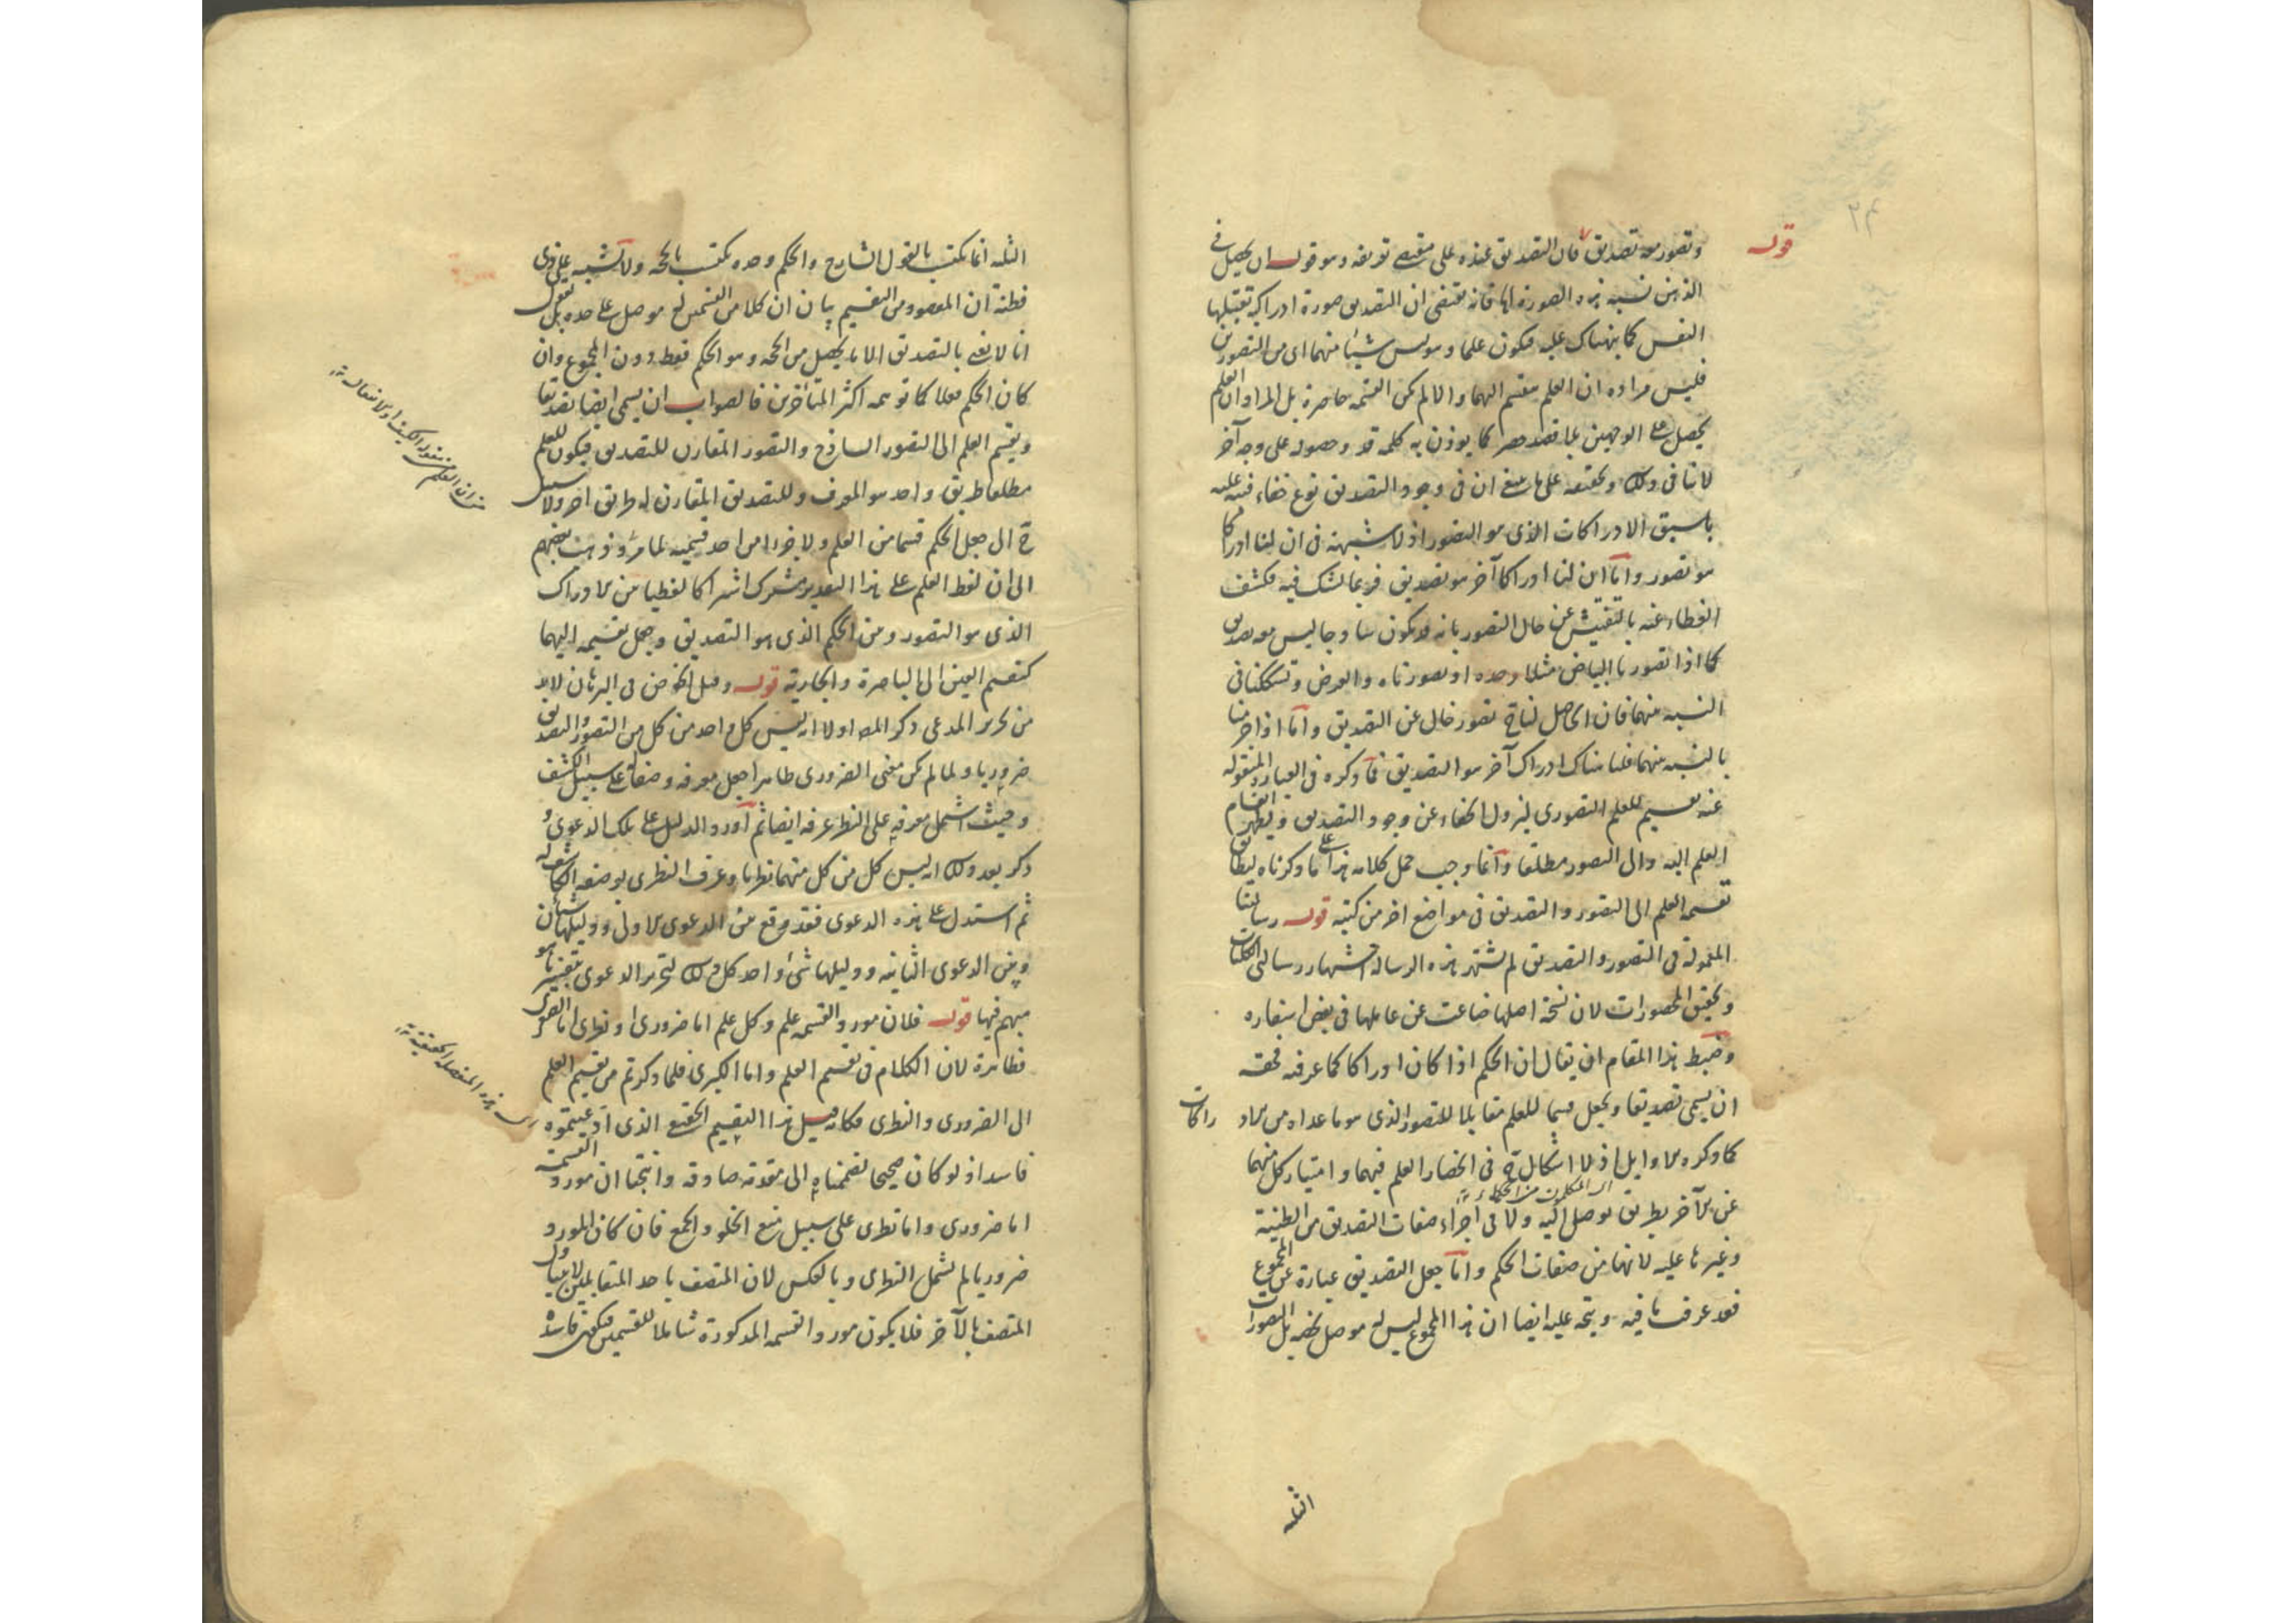 قوله
وتصور معه تصديق فان التصديق عنده على مقتضى تعريفه وهو قوله ان يحصل في
الذهن نسبة هذه الصورة اليها فانه يقتضي ان التصديق صورة ادراكية تقبلها
النفس كما نبهناك عليه فيكون علما وهو ليس شيئا منهما اى من التصورين
فليس مراده ان العلم ينقسم اليهما والا لم يكن القسمة حاصرة بل المراد ان العلم
يحصل على الوجهين بلا قصد حصر كما يوذن به كلمة قد وحصوله على وجه آخر
لا ينافي ذلك وتحقيقه على ما ينبغي ان في وجود التصديق نوع خفاء فنبه عليه
بان الادراكات الذى هو التصور اذ لا شبهة فى ان لنا ادراكا
هو تصور واما ان لنا ادراكا آخر هو تصديق فربما يشك فيه فكشف
الغطاء عنه بالتفتيش عن حال التصور بانه قد يكون ساذجا ليس معه تصديق
كما اذا تصورنا البياض مثلا وحده او تصورناه والعرض وتشككنا فى
النسبة بينهما فان الحاصل لنا ح تصور خال عن التصديق واما اذا جزمنا
بالنسبة بينهما فلنا هناك ادراك آخر هو التصديق فما ذكره فى العبارة المنقولة
عنه تقسيم للعلم التصورى ليزول الخفاء عن وجود التصديق ويظهر انقسام
العلم اليه والى التصور مطلقا وانما وجب حمل كلامه هذا على ما ذكرناه ليطابق
تقسيمه العلم الى التصور والتصديق فى مواضع اخر من كتبه قوله رسالتنا
المعمولة فى التصور والتصديق لم تشتهر هذه الرسالة اشتهار رسالتى الكليات
وتحقيق المحصورات لان نسخة اصلها ضاعت عن عاملها فى بعض اسفاره
وضبط هذا المقام ان يقال ان الحكم اذا كان ادراكا كما عرفته فحقه
ان يسمى تصديقا ويجعل قسما للعلم مقابلا للتصور الذى هو ما عداه من الادراكات
كما ذكره الاوايل اذ لا اشكال ح فى انحصار العلم فيهما وامتياز كل منهما
عن الآخر بطريق يوصل اليه ولا فى اجراء صفات التصديق من الظنية
وغيرها عليه لانها من صفات الحكم واما جعل التصديق عبارة عن المجموع
فقد عرف ما فيه ويتجه عليه ايضا ان هذا المجموع ليس له موصل يخصه بل التصورات
الثلثة
الثلثة انما تكتسب بالقول الشارح والحكم وحده يكتسب بالحجة ولا تشبه على ذى
فطنة ان المقصود من التقسيم بيان ان كلا من القسمين له موصل على حده بل نقول
انا لا نعنى بالتصديق الا ما يحصل من الحجة وهو الحكم فقط دون المجموع وان
كان الحكم فعلا كما توهمه اكثر المتاخرين فالصواب ان يسمى ايضا تصديقا
ويقسم العلم الى التصور الساذج والتصور المقارن للتصديق فيكون للعلم
مطلقا طريق واحد هو المعرف وللتصديق المقارن له طريق آخر ولا سبيل
ح الى جعل الحكم قسما من العلم ولا جزءا من احد قسميه لما مر وذهب بعضهم
الى ان لفظ العلم على هذا التقدير مشترك اشتراكا لفظيا بين الادراك
الذى هو التصور وبين الحكم الذى هو التصديق وجعل تقسيمه اليهما
كتقسيم العين الى الباصرة والجارية قوله وقبل الخوض فى البرهان لابد
من تحرير المدعى ذكر المصه اولا انه ليس كل واحد من كل من التصور والتصديق
ضروريا ولما لم يكن معنى الضرورى ظاهرا جعل معرفه وصفا له على سبيل الكشف
وحيث اشتمل معرفه على النظر عرفه ايضا ثم اورد الدليل على تلك الدعوى و
ذكر بعد ذلك انه ليس كل من كل منهما نظريا وعرف النظرى بوصفه الكاشف له
ثم استدل على هذه الدعوى فقد وقع بين الدعوى الاولى ودليلها شيئان
وبين الدعوى الثانية ودليلها شئ واحد كل ذلك لتحرير الدعوى بتفسير ما هو
مبهم فيها قوله فلان مورد القسمة علم وكل علم اما ضرورى او نظرى اما الصغرى
فظاهرة لان الكلام فى تقسيم العلم واما الكبرى فلما ذكرتم من تقسيم العلم
الى الضرورى والنظرى فكانه قيل هذا التقسيم الحقيقى الذى ادعيتموه
فاسد اذ لو كان صحيحا لضممناه الى مقدمة صادقة وانتجنا ان مورد القسمة
اما ضرورى واما نظرى على سبيل منع الخلو والجمع فان كان المورد
ضروريا لم يشمل النظرى وبالعكس لان المتصف باحد المتقابلين لا يتناول
المتصف بالآخر فلا يكون مورد القسمة المذكورة شاملا للقسمين فتكون فاسدة